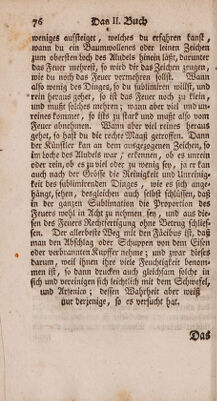 76 Das II. Buch
weniges aufsteiget, welches du erfahren kanst,
wann du ein Baumwollenes oder leinen Zeichen
zum obersten loch des Aludels hinein läßt, darunter
das Feuer mehrest, so wird dir das Zeichen zeugen,
wie du noch das Feuer vermehren sollst. Wann
also wenig des Dinges, so du sublimiren willst, und
rein heraus gehet, so ist das Feuer noch zu klein,
und must solches mehren; wann aber viel und un-
reines kommt, so ists zu stark und must also vom
Feuer abnehmen. Wann aber viel reines heraus
gehet, so hast du die rechte Maaß funden. Dann
der Künstler kan an dem ausgezogenen Zeichen, so
im loche des Aludels war, erkennen, ob es unrein
oder rein, ob es zu viel oder zu wenig sey, ja er kan
auch nach der Grösse die Reinigkeit und Unreinig-
keit des sublimirenden Dinges, wie es sich ange-
hängt, sehen, desgleichen auch selbst schlüssen, daß in
der ganzen Sublimation die Proportion des
Feuers wohl in Acht zu nehmen sey, und aus die-
ses des Feuers Rechtfertigung ohne Betrug schlies-
sen. Der allerbeste Weg mit den Fäcibus ist, daß
man den Abschlag oder Schuppen von dem Eisen
oder Verbrannten Kupffer nehme; und zwar dieses
darum, weil ihnen ihre viele Feuchtigkeit benom-
men ist, so dann drucken auch gleichsam solche in
sich und vereinigen sich leichtlich mit dem Schwefel,
und Arsenico; dessen Wahrheit aber weiß
nur derjenige, so es versucht hat.
Das